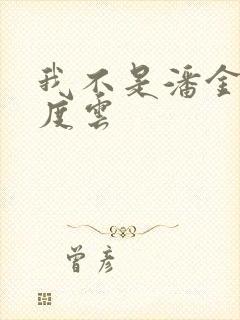 我不是潘金
度雲
曾彦